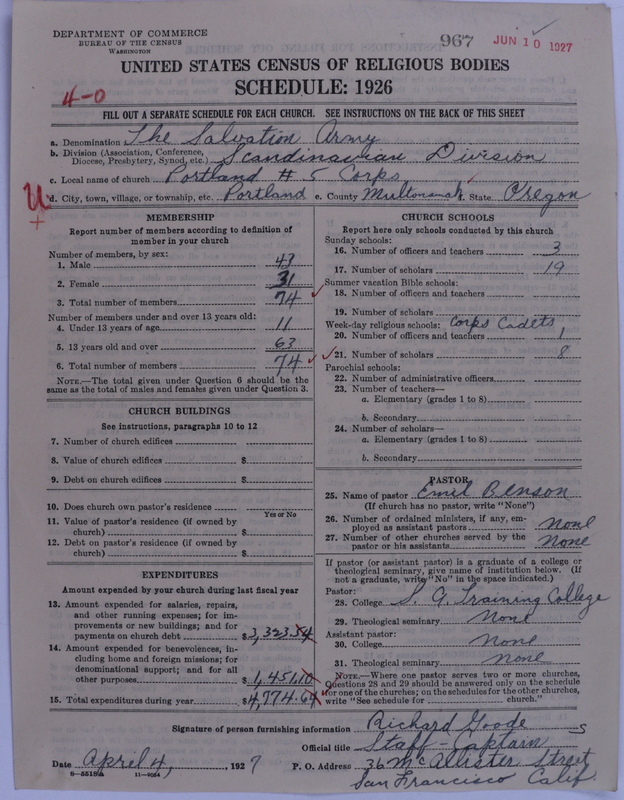 DEPARTMENT OF COMMERCE
BUREAU OF THE CENSUS
WASHINGTON
967
JUN 10 1927
UNITED STATES CENSUS OF RELIGIOUS BODIES
SCHEDULE: 1926
4-0
FILL OUT A SEPARATE SCHEDULE FOR EACH CHURCH. SEE INSTRUCTIONS ON THE BACK OF THIS SHEET
a. Denomination The Salvation Army
b. Division (Association, Conference, Diocese, Presbytery, Synod, etc.) Scandinavian Division
c. Local name of church Portland # 5 Corps
U
d. City, town, village, or township, etc. Portland e. County Multonamah f. State Oregon
MEMBERSHIP
Report number of members according to definition of
member in your church
Number of members, by sex:
1. Male 43
2. Female 31
3. Total number of members 74
Number of members under and over 13 years old:
4. Under 13 years of age 11
5. 13 years old and over 63
6. Total number of members 74
NOTE.—The total given under Question 6 should be the
same as the total of males and females given under Question 3.
CHURCH BUILDINGS
See instructions, paragraphs 10 to 12
7. Number of church edifices
8. Value of church edifices $
9. Debt on church edifices $
10. Does church own pastor's residence
Yes or No
11. Value of pastor's residence (if owned by
church) $
12. Debt on pastor's residence (if owned by
church) $
EXPENDITURES
Amount expended by your church during last fiscal year
13. Amount expended for salaries, repairs,
and other running expenses; for im-
provements or new buildings; and for
payments on church debt $3,323.54
14. Amount expended for benevolences, in-
cluding home and foreign missions; for
denominational support; and for all
other purposes $1,451.10
15. Total expenditures during year $4,774.64
CHURCH SCHOOLS
Report here only schools conducted by this church
Sunday schools:
16. Number of officers and teachers 3
17. Number of scholars 19
Summer vacation Bible schools:
18. Number of officers and teachers
19. Number of scholars
Week-day religious schools: Corps Cadets
20. Number of officers and teachers 1
21. Number of scholars 8
Parochial schools:
22. Number of administrative officers
23. Number of teachers—
a. Elementary (grades 1 to 8)
b. Secondary
24. Number of scholars—
a. Elementary (grades 1 to 8)
b. Secondary
PASTOR
25. Name of pastor Emil Benson
(If church has no pastor, write "None")
26. Number of ordained ministers, if any, em-
ployed as assistant pastors None
27. Number of other churches served by the
pastor or his assistants None
If pastor (or assistant pastor) is a graduate of a college or
theological seminary, give name of institution below. (If
not a graduate, write "No" in the space indicated.)
Pastor:
28. College S. A. Training College
29. Theological seminary None
Assistant pastor:
30. College None
31. Theological seminary None
NOTE.—Where one pastor serves two or more churches,
Questions 28 and 29 should be answered only on the schedule
for one of the churches; on the schedules for the other churches,
write "See schedule for church."
Signature of person furnishing information Richard Goode
Official title Staff-Captain
Date April 4, 1927 P. O. Address 36 McAllister Street
8-5518a 11-9054 San Francisco Calif